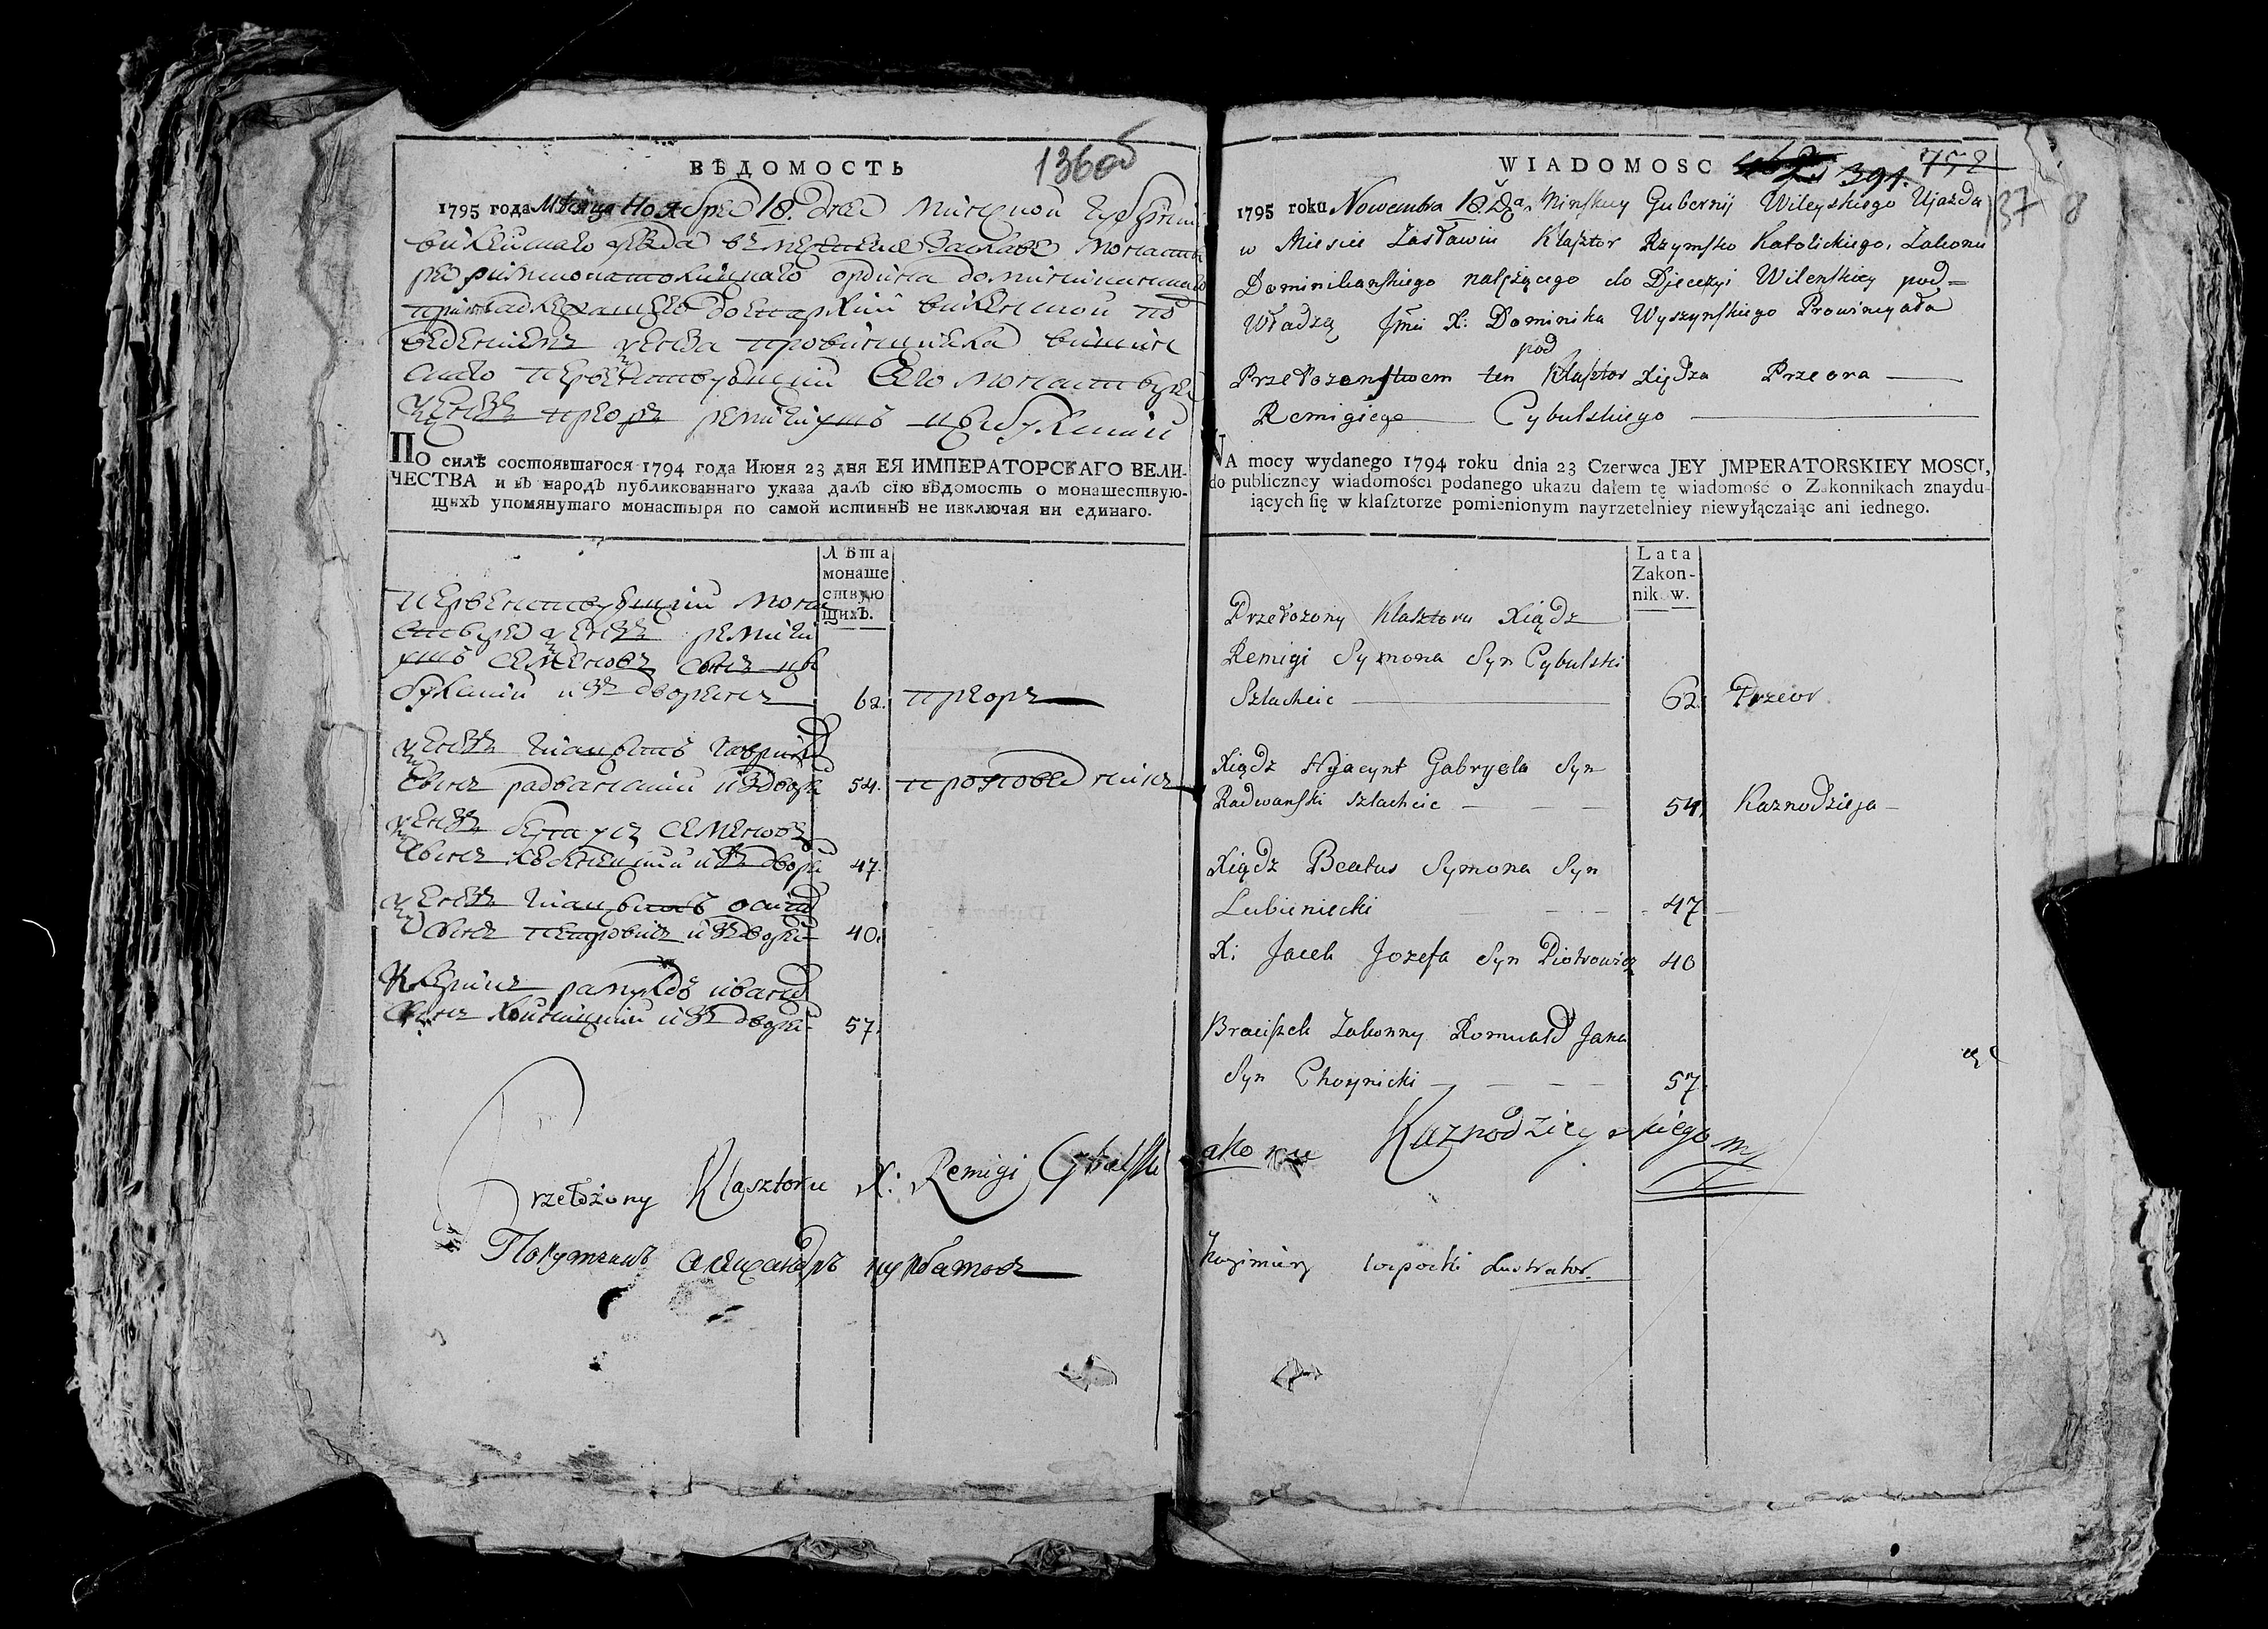 136об
ВѢДОМОСТЬ
1795 года Мѣсяца Ноября 18. дня Минской губернии
вилейскаго уезда въ местечке Заславе монасты
ря римскокатолицкаго ордина доминиканскаго
принадлежащего до епархии виленской под
ведениемъ ксенза провинциала вишин
скаго первенствующии сего монастыря
ксендзъ преоръ ремигиушъ цыбулский
По силѣ состоявшагося 1794 года Июня 23 дня ЕЯ ИМПЕРАТОРСКАГО ВЕЛИ-
ЧЕСТВА и въ народъ публикованнаго указа далъ сїю вѣдомость о монашествую-
щихъ упомянутаго монастыря по самой истиннѣ не изключая ни единаго.
Лѣта
монаше
ствую
щихъ.
первенствующии мона
стыря ксендзъ ремиги
ушъ семеновъ сынъ цы
булский изъ дворянъ 62. преоръ
ксендзъ гиацынтъ гаврилов
сынъ радванский из дворя 54. проповедникъ
ксендзъ беатусъ семеновъ
сынъ изъ дворя 47.
ксендзъ гиацынтъ осипов
сынъ петровичъ изъ дворя 40.
клерикъ рамуалдъ иванов
сынъ изъ дворя 57.
Przełożony Klasztoru X: Remigi Cybulski
Порутчикъ Александръ курбатов
WIADOMOSC 391. 752
137 8
1795 roku Nowembra 18. Da. Minskiey Gubernij Wileyskiego Ujazdu
w Miescie Zasławiu Klasztor Rzymsko Katolickiego, Zakonu
Dominikanskiego należącego do Djecezyi Wilenskiey pod-
Władzą Jmći X: Dominika Wyszynskiego Prowincyała
pod
Przełożenstwem ten Klasztor Xiędza Przeora
Remigiego Cybulskiego
NA mocy wydanego 1794 roku dnia 23 Czerwca JEY JMPERATORSKIEY MOSCI,
do publiczney wiadomości podanego ukazu dałem tę wiadomość o Zakonnikach znaydu-
iących się w klasztorze pomienionym nayrzetelniey niewyłączaiąc ani iednego.
Lata
Zakon-
nikow.
Przełożony Klasztoru Xiądz
Remigi Symona Syn Cybulski
Szlachcic 62. Przeor
Xiądz Hyacynt Gabryela Syn
Radwanski szlachcic 54. Kaznodzieja
Xiądz Beatus Symona Syn
Lubieniecki 47
X: Jacek Jozefa Syn Piotrowicz 40
Braciszek Zakonny Romuald Jana
Syn Choynicki 57.
Zakonu Kaznodzieyskiego
Kazimierz Lustrator.